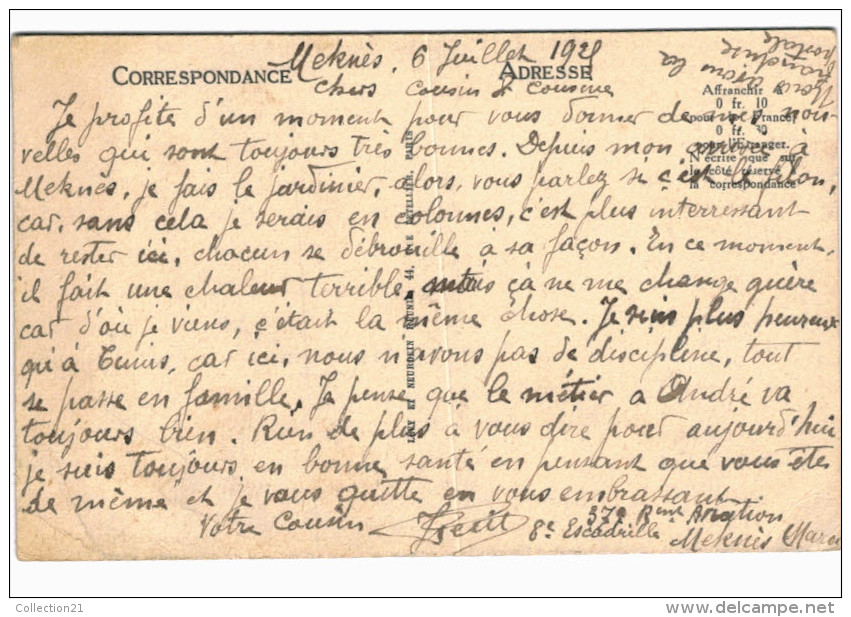 Meknès, 6 Juillet 192
CORRESPONDANCE
ADRESSE
Chers cousin & cousine
Je profite d'un moment pour vous donner de mes nou-
velles qui sont toujours très bonnes. Depuis mon arrivée à
Meknès, je fais le jardinier, alors, vous parlez si c'est le filon,
car, sans cela je serais en colonnes, c'est plus interressant
de rester ici, chacun se débrouille à sa façons. En ce moment,
il fait une chaleur terrible mais çà ne me change guère
car d'où je viens, c'était la même chose. Je suis plus heureux
qu'à Tunis, car ici, nous n'avons pas de discipline, tout
se passe en famille. Je pense que le métier a André va
toujours bien. Rien de plus à vous dire pour aujourd'hui
je suis toujours en bonne santé en pensant que vous êtes
de même et je vous quitte en vous embrassant
Votre cousin
37e Rgiment Aviation
8e Escadrille Meknès Maroc
Affranchir à
0 fr. 10
pour la France,
0 fr. 30
pour l'Etranger.
N'écrire que sur
le côté réservé à
la correspondance
LÉVY ET NEURDEIN RÉUNIS, 44, RUE LETELLIER, PARIS
franchise
postale
Collection21
www.delcampe.net